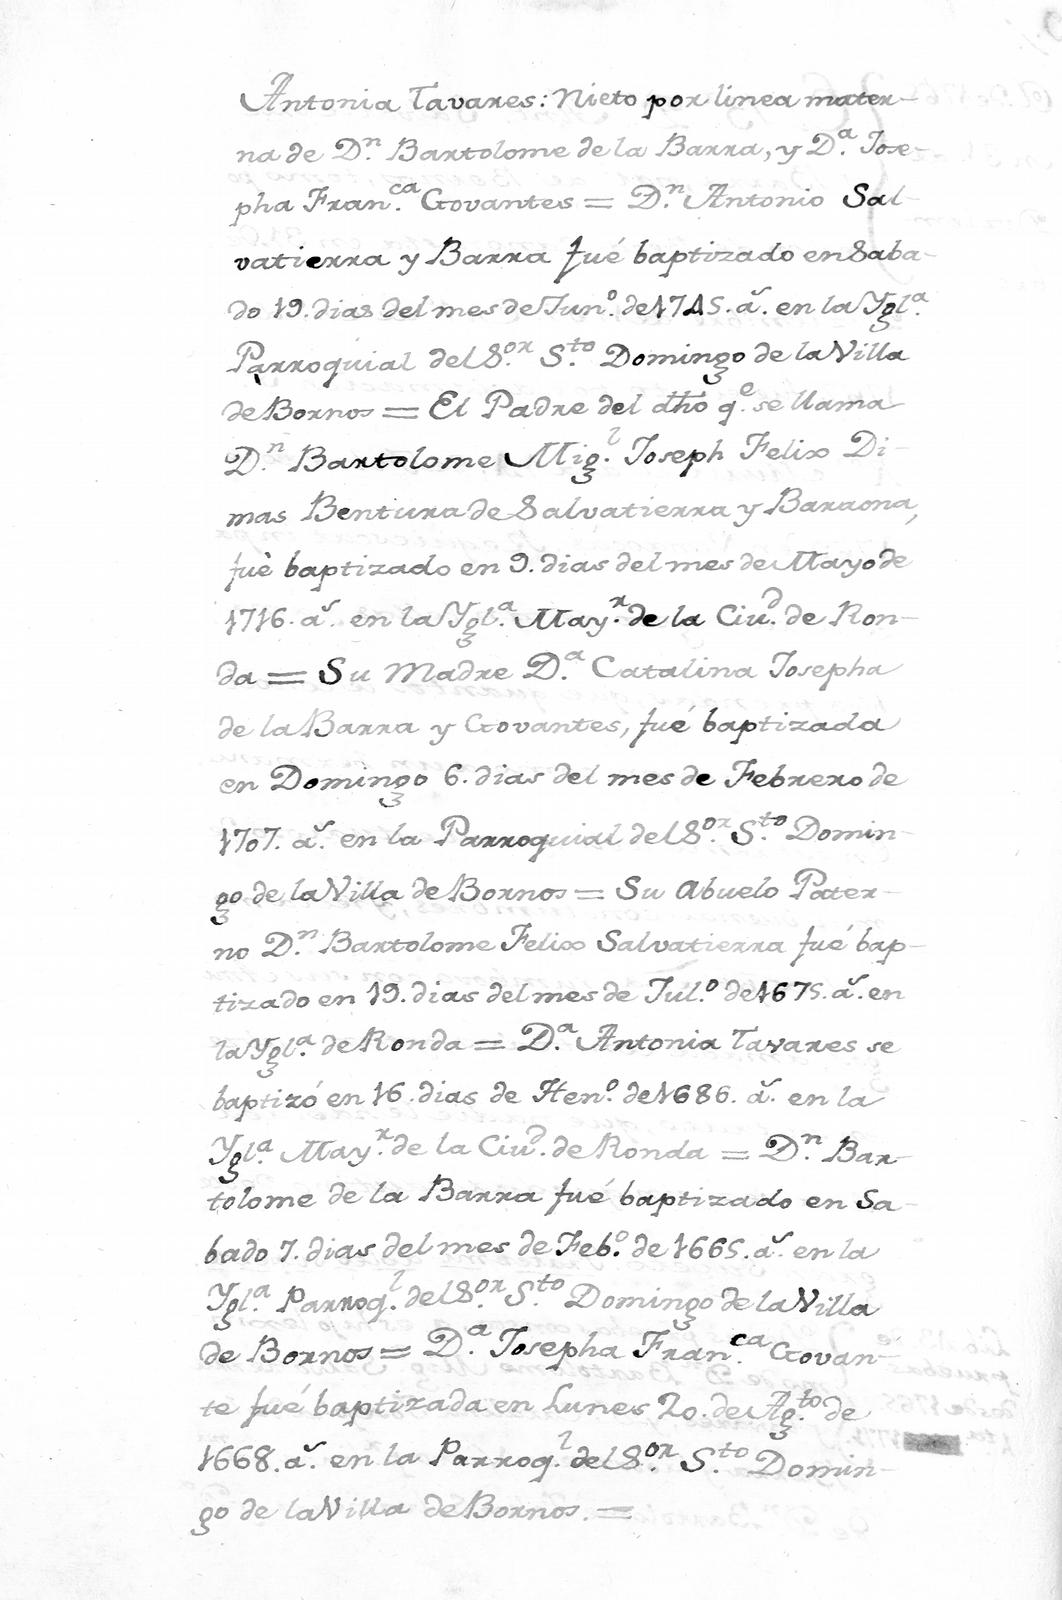 Antonia Tavares: Nieto por linea mater-
na de D.ⁿ Bartolome de la Barra, y D.ᵃ Jose-
pha Fran.ᶜᵃ Govantes = D.ⁿ Antonio Sal-
vatierra y Barra fué baptizado en Saba-
do 19. dias del mes de Jun.º de 1745. a.ˢ en la Ygl.ᵃ
Parroquial del S.ᵒʳ S.ᵗᵒ Domingo de la Villa
de Bornos = El Padre del dho q.ᵉ se llama
D.ⁿ Bartolome Mig.ˡ Joseph Felix Di-
mas Bentura de Salvatierra y Barraona,
fué baptizado en 9. dias del mes de Mayo de
1716. a.ˢ en la Ygl.ᵃ May.ʳ de la Ciu.ᵈ de Ron-
da = Su Madre D.ᵃ Catalina Josepha
de la Barra y Govantes, fué baptizada
en Domingo 6. dias del mes de Febrero de
1707. a.ˢ en la Parroquial del S.ᵒʳ S.ᵗᵒ Domin-
go de la Villa de Bornos = Su Abuelo Pater-
no D.ⁿ Bartolome Felix Salvatierra fué bap-
tizado en 19. dias del mes de Jul.º de 1675. a.ˢ en
la Ygl.ᵃ de Ronda = D.ᵃ Antonia Tavares se
baptizó en 16 dias de Hen.º de 1686. a.ˢ en la
Ygl.ᵃ May.ʳ de la Ciu.ᵈ de Ronda = D.ⁿ Bar-
tolome de la Barra fué baptizado en Sa-
bado 7. dias del mes de Feb.º de 1665. a.ˢ en la
Ygl.ᵃ Parroq.ˡ del S.ᵒʳ S.ᵗᵒ Domingo de la Villa
de Bornos = D.ᵃ Josepha Fran.ᶜᵃ Govan-
te fué baptizada en Lunes 20. de Ag.ᵗᵒ de
1668. a.ˢ en la Parroq.ˡ del S.ᵒʳ S.ᵗᵒ Domin-
go de la Villa de Bornos. =